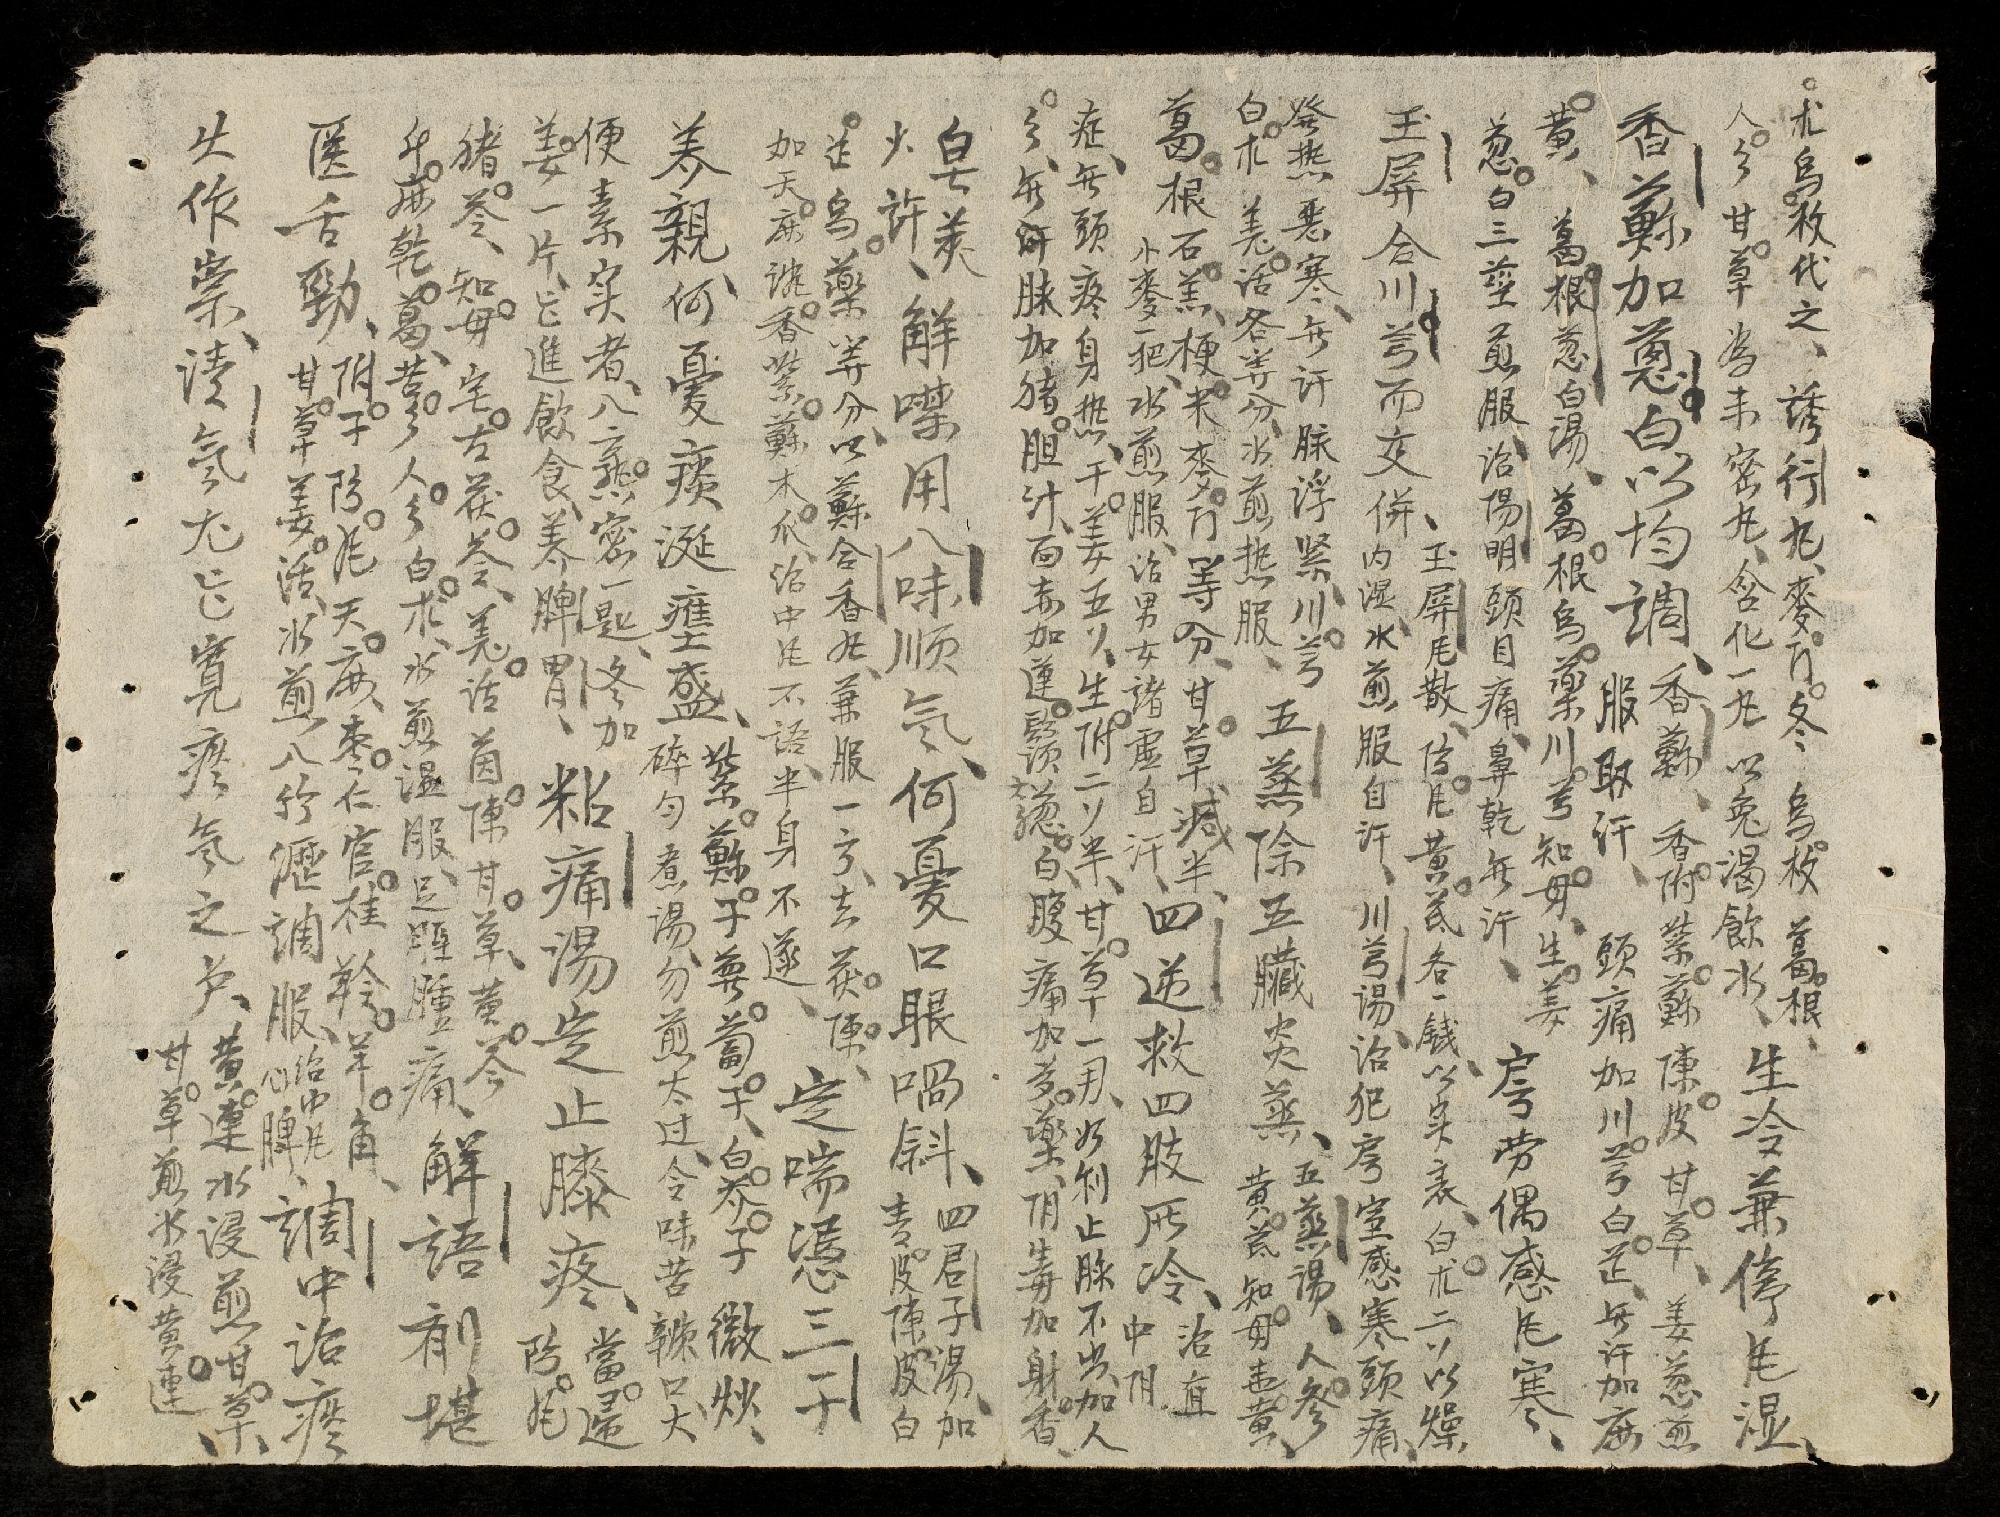 朮烏枚代之、誘行丸、麥门冬 烏枚 葛根、
人参甘草為末密丸、含化一丸以免渴飲水、生冷兼停凬湿、
香蘇加蔥白以均調、香蘇、香附紫蘇陳皮甘草、姜葱煎
服取汗、頭痛加川芎白芷、無汗加麻
黄、葛根葱白湯、葛根烏藥川芎知母、生姜
葱白三莖煎服、治陽明頭目痛、鼻乾無汗、房劳偶感凬寒、
玉屏合川芎而交併、玉屏凬散、防凬黄芪各一銭以实表、白朮二以燥
内湿、水煎服自汗、川芎湯、治犯房室感寒頭痛、
癸热惡寒、無汗脉浮紧、川芎
白朮羗活各等分、水煎热服、五蒸除五臟炎蒸、五蒸湯、人参
黄芪知母
葛根石羔、梗米麥门等分、甘草减半、四逆救四肢厥冷、治直
小麥一把、水煎服、治男女諸虚自汗、中阴
症、無頭疼身热、干姜五、生附二半、甘草一用、利止脉不出、加人
参、無脉加猪胆汁、面赤加連鬚葱白、腹痛加芍藥、阴毒加射香、
皂荚、解噤用八味順氣、何憂口眼喎斜、四君子湯、加
火许、青皮陳皮白
芷烏藥等分、以蘇合香丸、兼服一方、去茯陳、
加天麻沈香紫蘇木瓜、治中凬不語、半身不遂、定喘凴三子
养親、何憂痰涎壅盛、紫蘇子萝蔔子、白芥子微炒、
碎勻煮湯、勿煎太过、令味苦辣口、大
便素实者、八熟密一匙、冬加
姜一片、定進飲食、养脾胃、粘痛湯定止膝疼、當歸
防凬
猪苓、知母宅古茯苓、羗活茵陳甘草、黄芩
升麻乾葛、苦参人参白朮、水煎温服、足脛腫痛、解語剤堪
医舌勁、附子防凬天麻、枣仁官桂羚羊角、
甘草羗活、水煎八竹瀝調服、治中凬心脾、調中治瘧
失作祟、清氣尤定寛瘧氣之户、黄連水浸煎甘草、
甘草煎水浸黄連、